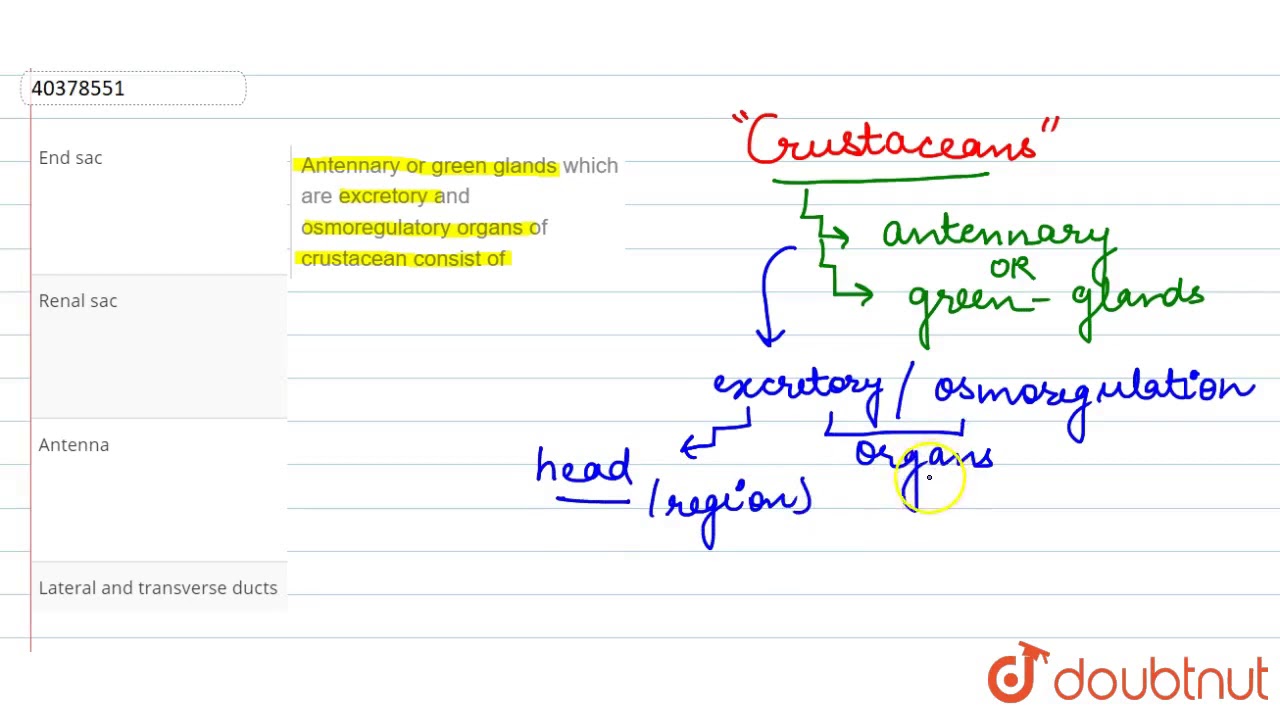 40378551
End sac
Renal sac
Antenna
Lateral and transverse ducts
Antennary or green glands which
are excretory and
osmoregulatory organs of
crustacean consist of
"Crustaceans"
antennary
OR
green- glands
excretory / osmoregulation
organs
head
(region)
doubtnut